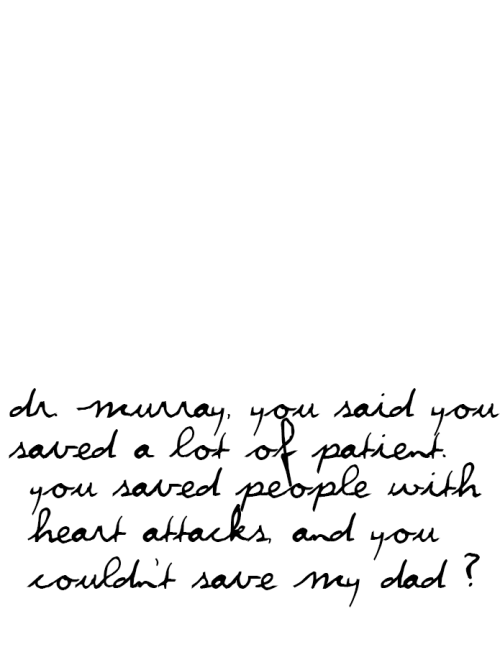 dr. murray, you said you
saved a lot of patient.
you saved people with
heart attacks, and you
couldn't save my dad ?